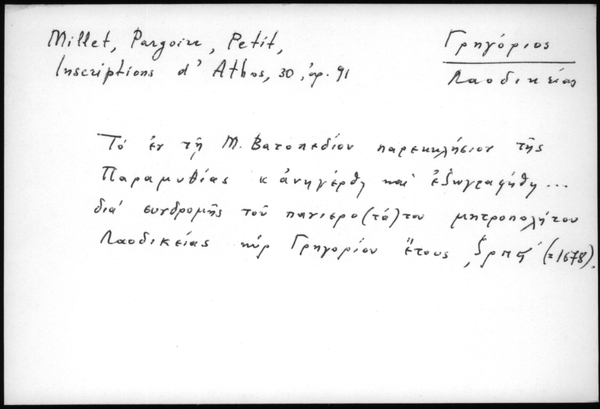 Millet, Pargoire, Petit,
Inscriptions d' Athos, 30, ἀρ. 91
Γρηγόριος
Λαοδικείας
Τό ἐν τῇ Μ. Βατοπεδίου παρεκκλήσιον τῆς
Παραμυθίας κ ἀνηγέρθη καί ἐζωγραφήθη...
διά συνδρομῆς τοῦ πανιερο(τά)του μητροπολήτου
Λαοδικείας κύρ Γρηγορίου ἔτους ͵ζρπϛ´ (=1678).